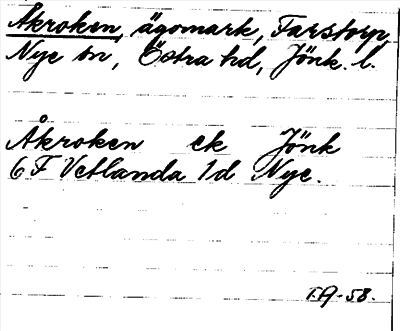 Åkroken, ägomark, Farstorp,
Nye sn, Östra hd, Jönk. l.
Åkroken ek Jönk
6 F Vetlanda 1d Nye.
T.A. -58.